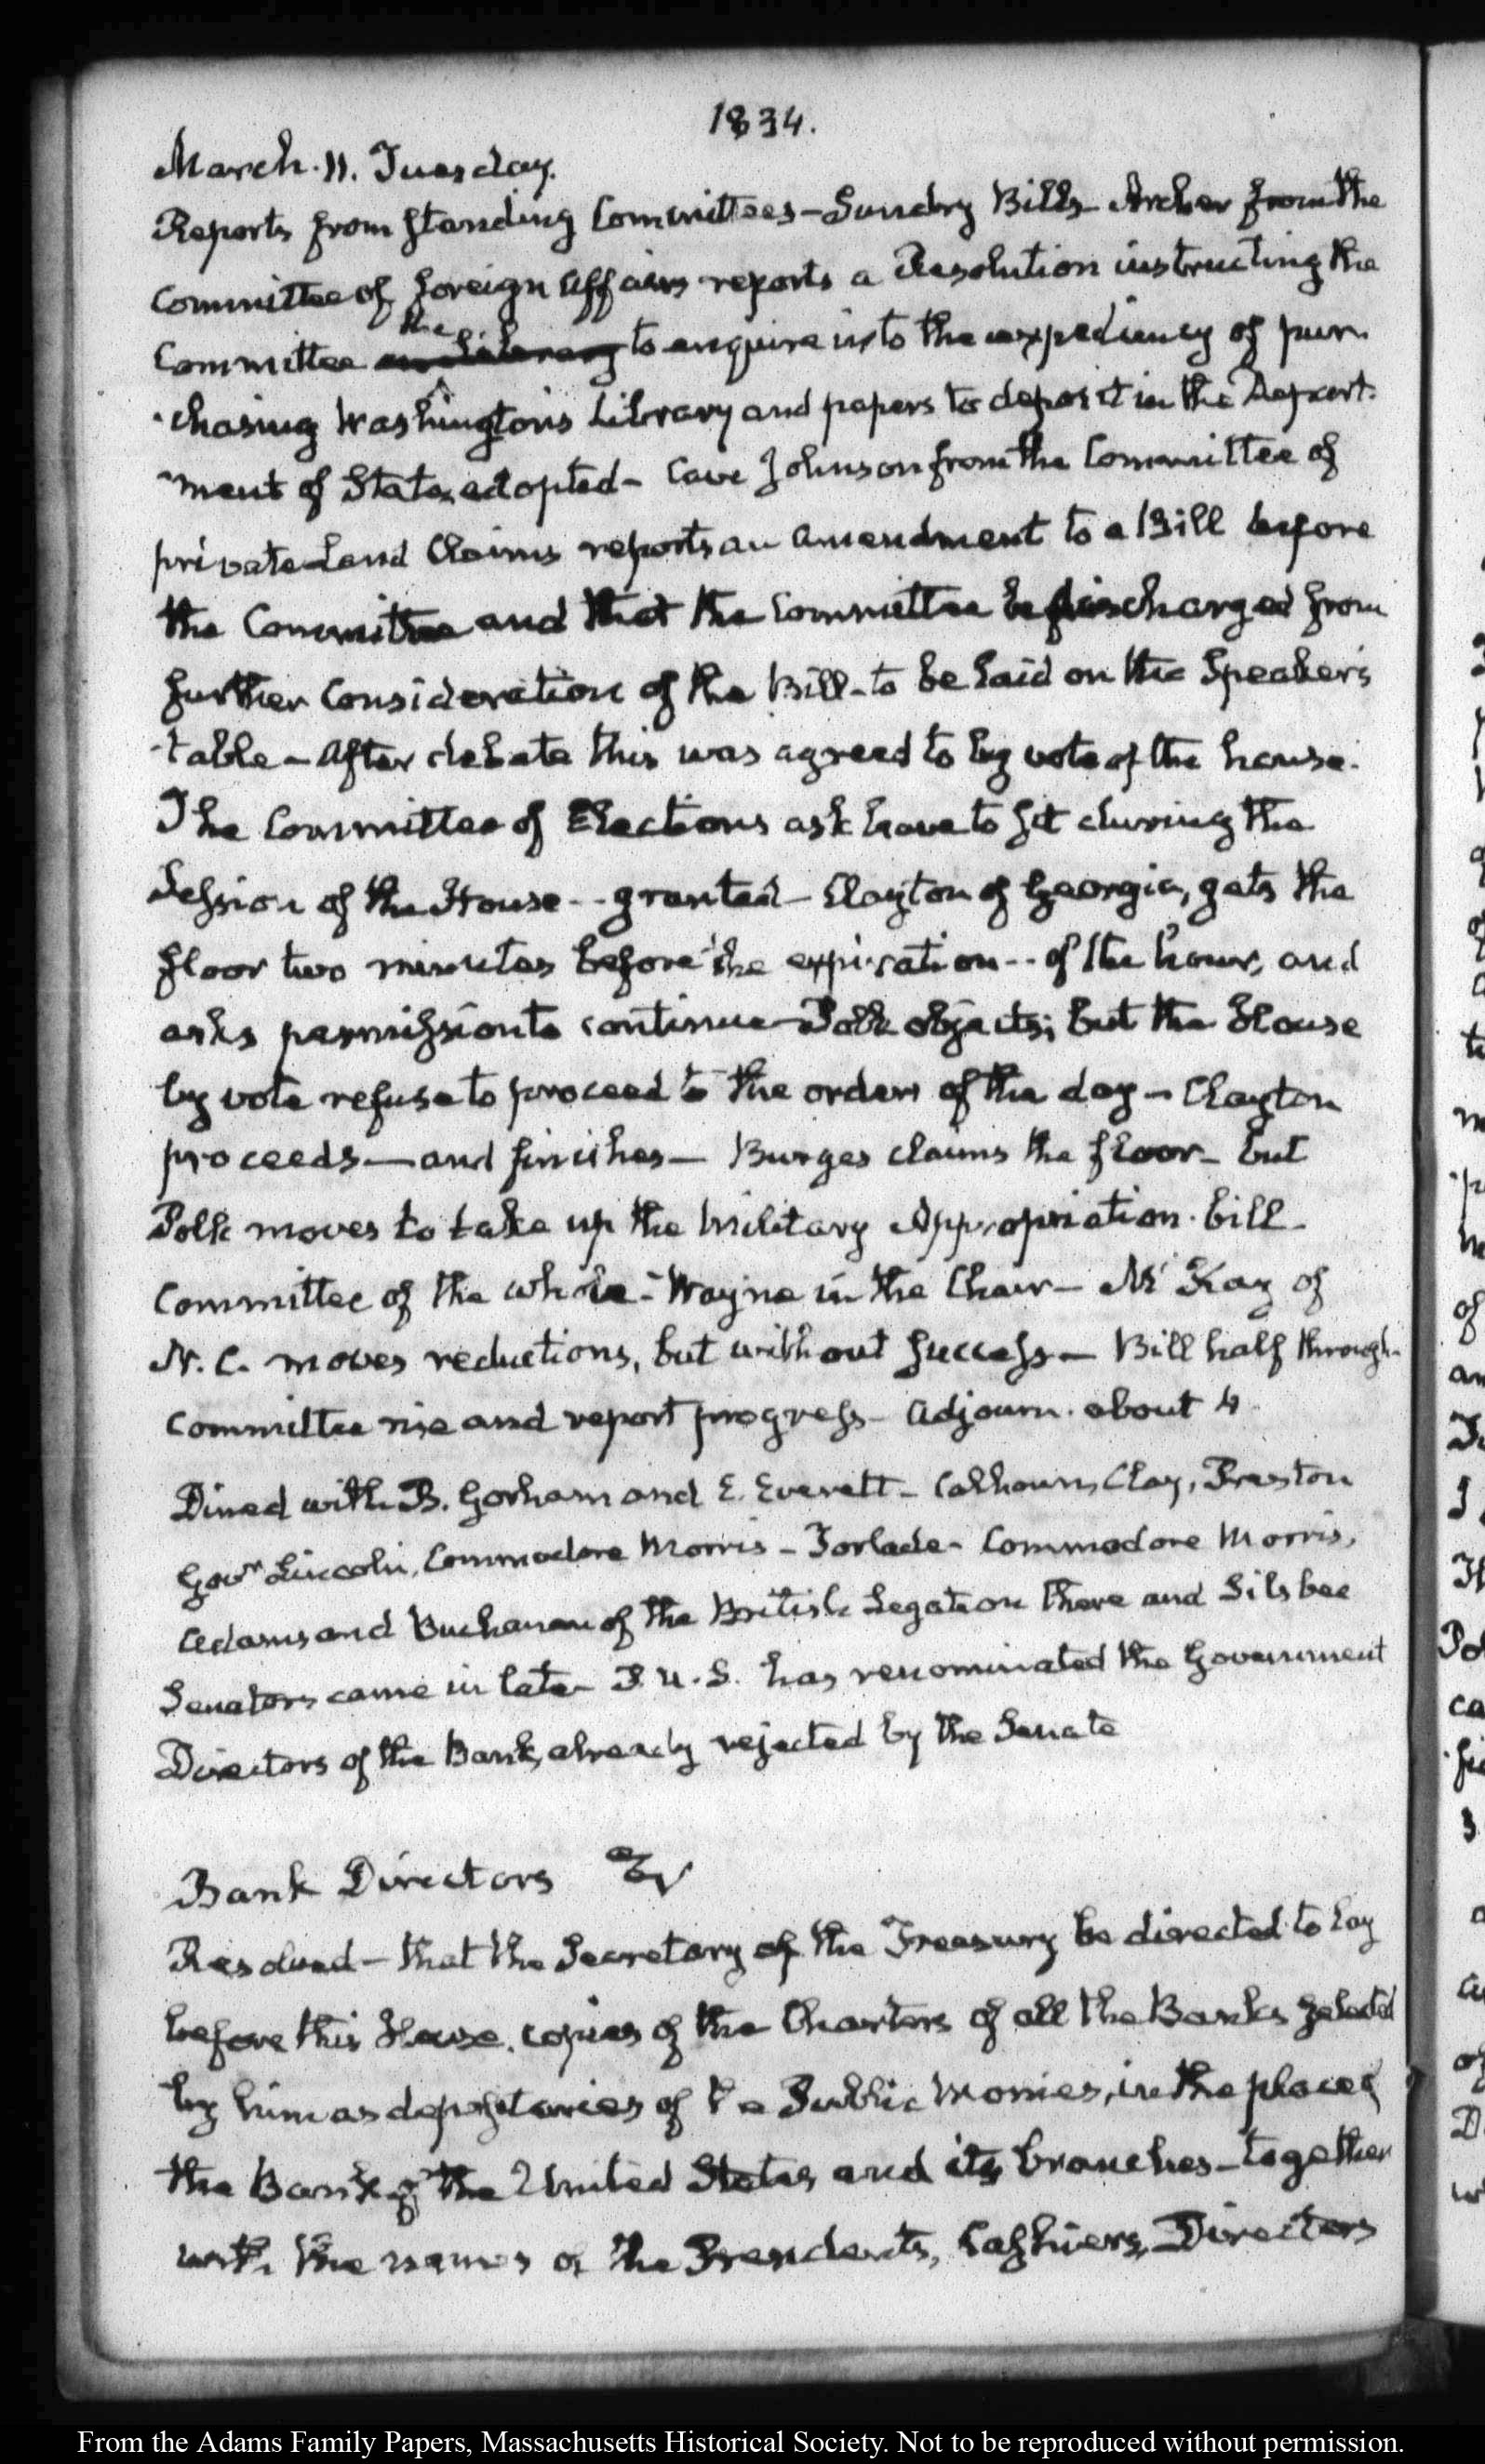 1834.
March. 11. Tuesday.
Reports from standing Committees – Sundry Bills – Archer from the
Committee of foreign affairs reports a Resolution instructing the
the
Committee on Library to enquire into the expediency of pur-
-chasing Washington's Library and papers to deposit in the Depart-
-ment of State, adopted – Cave Johnson from the Committee of
private Land Claims reports an amendment to a Bill before
the Committee and that the Committee be discharged from
further Consideration of the Bill – to be laid on the Speaker's
table – After debate this was agreed to by vote of the house.
The Committee of Elections ask leave to sit during the
Session of the House -- granted – Clayton of Georgia, gets the
floor two minutes before the expiration -- of the hour, and
asks permission to continue – Polk objects; but the House
by vote refuse to proceed to the orders of the day – Clayton
proceeds — and finishes — Burges claims the floor – but
Polk moves to take up the Military Appropriation bill –
Committee of the whole – Wayne in the Chair — McKay of
N. C. moves reductions, but without success — Bill half through –
Committee rise and report progress – Adjourn about 4
Dined with B. Gorham and E. Everett – Calhoun, Clay, Preston
Govr Lincoln, Commodore Morris – Torlade – Commodore Morris,
Adams and Buchanan of the British Legation there and Silsbee
Senators came in late – P. U. S. has renominated the Government
Directors of the Bank, already rejected by the Senate
Bank Directors
Resolved – that the Secretary of the Treasury be directed to lay
before this House, copies of the Charters of all the Banks selected
by him as depositaries of the Public Monies, in the place of
the Bank of the United States and its branches – together
with the names of the Presidents, Cashiers, Directors
From the Adams Family Papers, Massachusetts Historical Society. Not to be reproduced without permission.